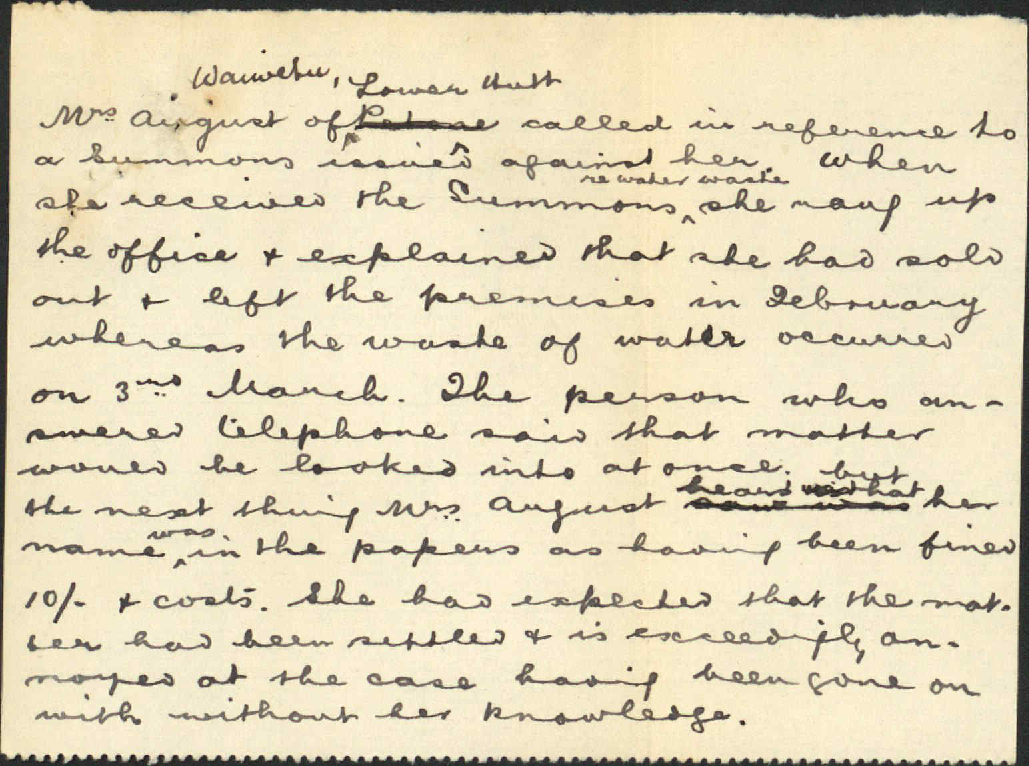 Waiwetu, Lower Hutt
Mrs. August of Petone called in reference to
a Summons issued against her. When
re water waste
she received the Summons, she rang up
the office & explained that she had sold
out & left the premises in February
whereas the waste of water occurred
on 3rd March. The person who an-
swered telephone said that matter
would be looked into at once. but
heard was that
the next thing Mrs. August saw was her
was
name in the papers as having been fined
10/- & costs. She had expected that the mat-
ter had been settled & is exceedigly an-
noyed at the case having been gone on
with without her knowledge.